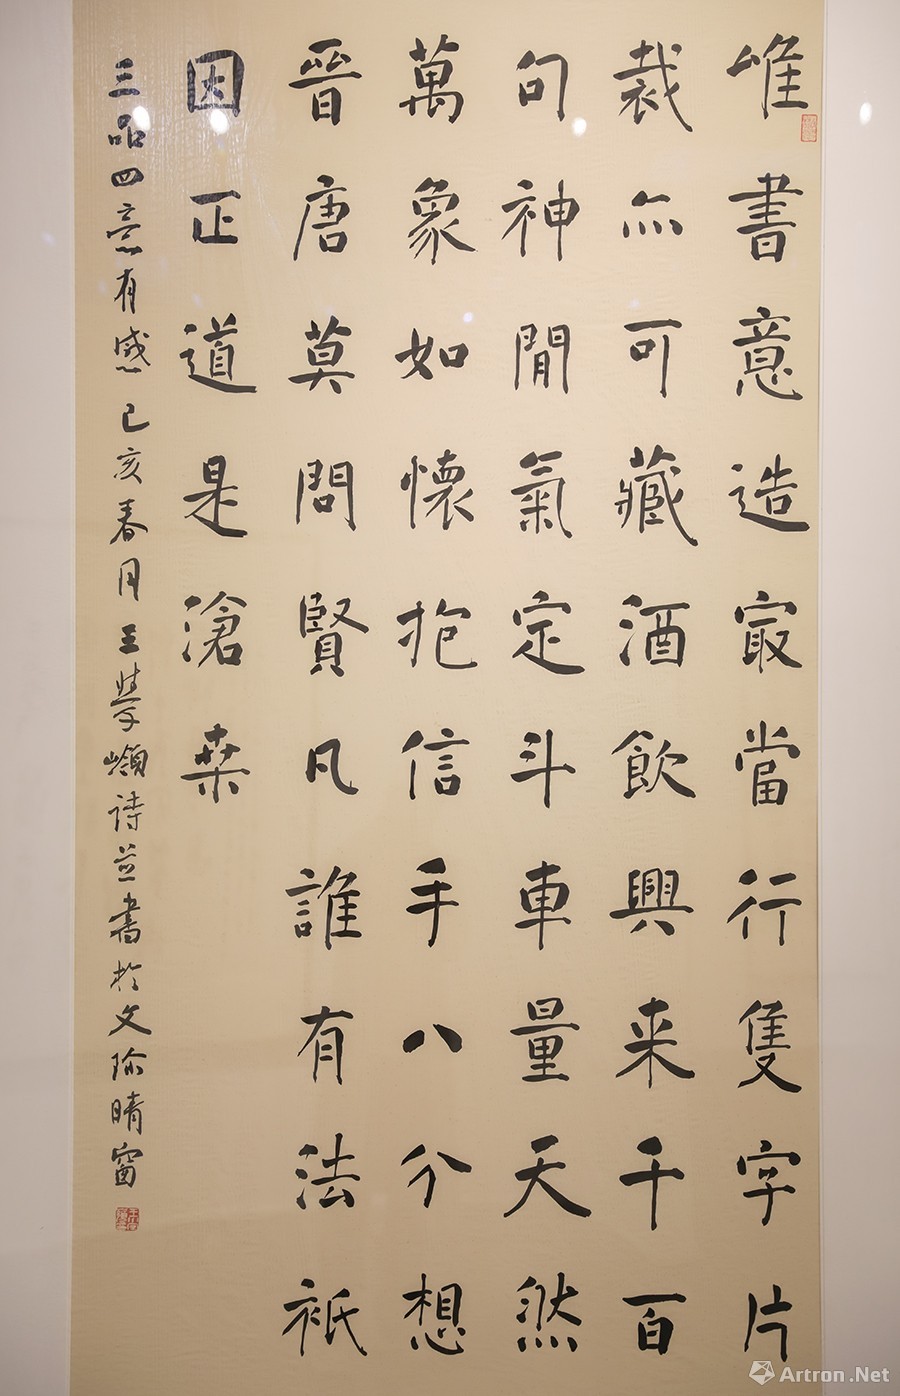 唯書意造寂當行隻字片
裁亦可藏酒飲興来千百
句神閒氣定斗車量天然
萬象如懷抱信手八分想
晉唐莫問賢凡誰有法祇
因正道是滄桑
三品四意有感己亥春月王學嶺詩並書於文隃晴窗
Artron.Net